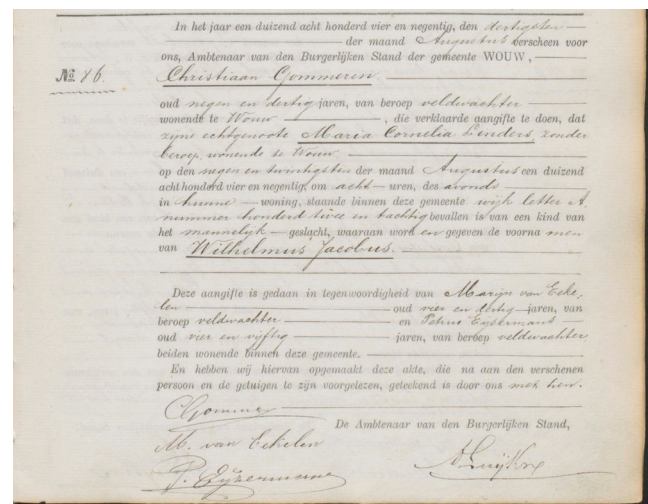 In het jaar een duizend acht honderd vier en negentig, den dertigsten
der maand Augustus verscheen voor
ons, Ambtenaar van den Burgerlijken Stand der gemeente WOUW,
No 86.
Christiaan Gommeren
oud negen en dertig jaren, van beroep veldwachter
wonende te Wouw, die verklaarde aangifte te doen, dat
zijne echtgenoote Maria Cornelia Linders, zonder
beroep, wonende te Wouw
op den negen en twintigsten der maand Augustus een duizend
acht honderd vier en negentig, om acht uren, des avonds
in hunne woning, staande binnen deze gemeente wijk letter A
nummer honderd twee en tachtig bevallen is van een kind van
het mannelijk geslacht, waaraan word en gegeven de voorna men
van Wilhelmus Jacobus.
Deze aangifte is gedaan in tegenwoordigheid van Marijn van Eeke,
len oud vier en dertig jaren, van
beroep veldwachter en Petrus Eijzermans
oud vier en vijftig jaren, van beroep veldwachter,
beiden wonende binnen deze gemeente.
En hebben wij hiervan opgemaakt deze akte, die na aan den verschenen
persoon en de getuigen te zijn voorgelezen, geteekend is door ons met hen.
CGommer
De Ambtenaar van den Burgerlijken Stand,
M. van Eekelen
P. Eijzermans